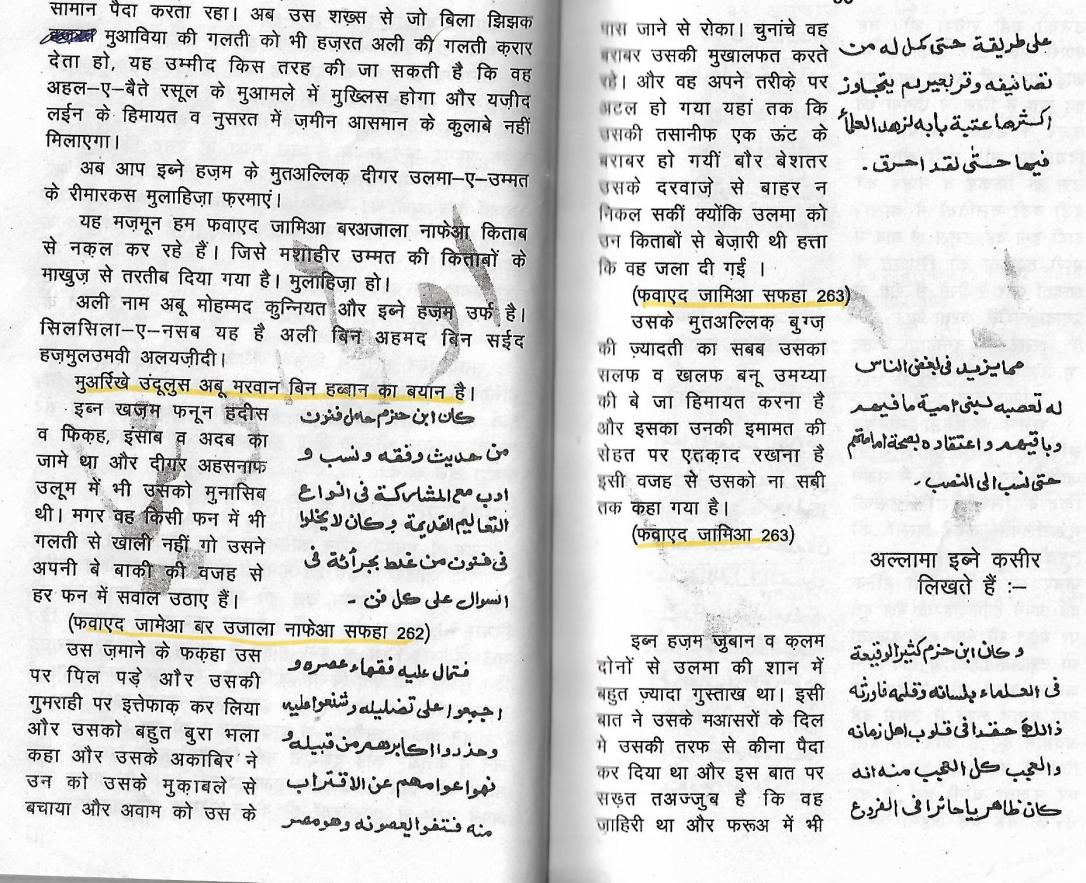 सामान पैदा करता रहा। अब उस शख़्स से जो बिला झिझक
मुआविया की गलती को भी हज़रत अली की ग़लती क़रार
देता हो, यह उम्मीद किस तरह की जा सकती है कि वह
अहल-ए-बैते रसूल के मुआमले में मुख्लिस होगा और यज़ीद
लईन के हिमायत व नुसरत में ज़मीन आसमान के कुलाबे नहीं
मिलाएगा।
अब आप इब्ने हज़म के मुतअल्लिक़ दीगर उलमा-ए-उम्मत
के रीमारकस मुलाहिज़ा फ़रमाएं।
यह मज़मून हम फवाएद जामिआ बरअजाला नाफेआ किताब
से नक़ल कर रहे हैं। जिसे मशाहीर उम्मत की किताबों के
माखुज़ से तरतीब दिया गया है। मुलाहिज़ा हो।
अली नाम अबू मोहम्मद कुन्नियत और इब्ने हज़म उर्फ है।
सिलसिला-ए-नसब यह है अली बिन अहमद बिन सईद
हज़मुलउमवी अलयज़ीदी।
मुअर्रिखे उंदूलुस अबू मरवान बिन हब्बान का बयान है।
इब्न खज़म फनून हदीस
व फिक़ह, इंसाब व अदब का
जामे था और दीगर अहसनाफ
उलूम में भी उसको मुनासिब
थी। मगर वह किसी फन में भी
गलती से खाली नहीं गो उसने
अपनी बे बाकी की वजह से
हर फन में सवाल उठाए हैं।
كان ابن حزم حامل فنون
من حديث وفقه ونسب و
ادب مع المشاركة فى انواع
التعاليم القديمة وكان لا يخلوا
فى فنون من غلط بجرأئة فى
السوال على كل فن ۔
(फवाएद जामेआ बर उजाला नाफेआ सफहा 262)
उस ज़माने के फक़हा उस
पर पिल पड़े और उसकी
गुमराही पर इत्तेफाक़ कर लिया
और उसको बहुत बुरा भला
कहा और उसके अकाबिर ने
उन को उसके मुक़ाबले से
बचाया और अवाम को उस के
فتمال عليه فقهاء عصره و
اجمعوا على تضليله وشنعوا عليه
وحذدوا اكابرهم من قبيله و
نهوا عوامهم عن الاقتراب
منه فتنفوا لعصونه وهو مصر
पास जाने से रोका। चुनांचे वह
बराबर उसकी मुखालफत करते
रहे। और वह अपने तरीक़े पर
अटल हो गया यहां तक कि
उसकी तसानीफ एक ऊंट के
बराबर हो गयीं बौर बेशतर
उसके दरवाज़े से बाहर न
निकल सकीं क्योंकि उलमा को
उन किताबों से बेज़ारी थी हत्ता
कि वह जला दी गई ।
على طريقة حتى كمل له من
تصانيفه وقر بعير لم يتجاوز
اكثرها عتبة بابه لزهد العلمأ
فيها حتى لقد احرق ۔
(फवाएद जामिआ सफहा 263)
उसके मुतअल्लिक़ बुग्ज़
की ज़्यादती का सबब उसका
सलफ व खलफ बनू उमय्या
की बे जा हिमायत करना है
और इसका उनकी इमामत की
सेहत पर एतक़ाद रखना है
इसी वजह से उसको ना सबी
तक कहा गया है।
مما يزيد فى بغض الناس
له تعصبه لبنى امية ما فيهم
وباقيهم واعتقاده بصحة امامتهم
حتى نسب الى النصب ۔
(फवाएद जामिआ 263)
अल्लामा इब्ने कसीर
लिखते हैं :–
इब्न हज़म ज़ुबान व क़लम
दोनों से उलमा की शान में
बहुत ज़्यादा गुस्ताख था। इसी
बात ने उसके मआसरों के दिल
मे उसकी तरफ से कीना पैदा
कर दिया था और इस बात पर
सख़्त तअज्जुब है कि वह
ज़ाहिरी था और फरूअ में भी
وكان ابن حزم كثير الوقيعة
فى العلماء بلسانه وقلمه فاورثه
ذالك حقدا فى قلوب اهل زمانه
والعجب كل العجب منه انه
كان ظاهريا حائرا فى الفروع